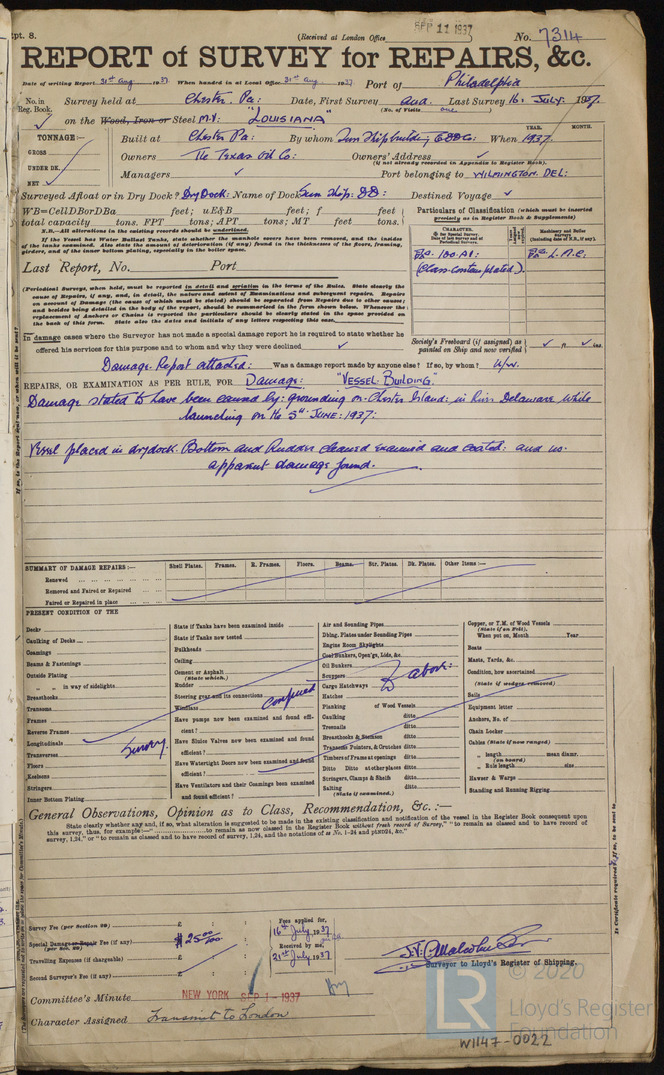 Rpt. 8.
(Received at London Office
SEP 11 1937
No. 7314
REPORT of SURVEY for REPAIRS, &c.
Date of writing Report 31st Aug 1937 When handed in at Local Office 31st Aug 1937 Port of Philadelphia
No. in Reg. Book. Survey held at Chester. Pa: Date, First Survey and Last Survey 16. July. 1937.
(No. of Visits one)
on the Wood, Iron or Steel M.V: "LOUISIANA"
TONNAGE:—
GROSS
UNDER DK.
NET
Built at Chester Pa: By whom Sun Shipbuilding & DD Co: When 1937.
YEAR. MONTH.
Owners The Texas Oil Co: Owners' Address
(if not already recorded in Appendix to Register Book).
Managers Port belonging to WILMINGTON. DEL:
Surveyed Afloat or in Dry Dock? Dry Dock: Name of Dock Sun Ship: DD: Destined Voyage
WB=CellDBorDBa feet; uE&B feet; f feet
total capacity tons. FPT tons; APT tons; MT feet tons.
N.B.—All alterations in the existing records should be underlined.
If the Vessel has Water Ballast Tanks, state whether the manhole covers have been removed, and the insides
of the tanks examined. Also state the amount of deterioration (if any) found in the thicknesses of the floors, framing,
girders, and of the inner bottom plating, especially in the boiler space.
Particulars of Classification (which must be inserted
precisely as in Register Book & Supplements)
CHARACTER.
Machinery and Boiler Surveys
(Including date of N.B., if any).
100. A1:
(Class contemplated).
L.M.C:
Last Report, No. Port
(Periodical Surveys, when held, must be reported in detail and seriatim in the terms of the Rules. State clearly the
cause of Repairs, if any, and, in detail, the nature and extent of Examinations and subsequent repairs. Repairs
on account of Damage (the cause of which must be stated) should be separated from Repairs due to other causes;
and besides being detailed in the body of the report, should be summarized in the form shown below. Whenever the
replacement of Anchors or Chains is reported the particulars should be clearly stated in the space provided on
the back of this form. State also the dates and initials of any letters respecting this case.
In damage cases where the Surveyor has not made a special damage report he is required to state whether he
offered his services for this purpose and to whom and why they were declined
Society's Freeboard (if assigned) as
painted on Ship and now verified ft ins.
Damage Report attached: Was a damage report made by anyone else? If so, by whom? U/W.
REPAIRS, OR EXAMINATION AS PER RULE, FOR Damage: "VESSEL BUILDING"
Damage stated to have been caused by: grounding on Chester Island: in River Delaware while
launching on the 5th JUNE: 1937:
Vessel placed in drydock. Bottom and Rudder cleaned examined and coated: and no.
apparent damage found.
SUMMARY OF DAMAGE REPAIRS:— Shell Plates. Frames. R. Frames. Floors. Beams. Str. Plates. Dk. Plates. Other Items:—
Renewed
Removed and Faired or Repaired
Faired or Repaired in place
PRESENT CONDITION OF THE
Decks
Caulking of Decks
Coamings
Beams & Fastenings
Outside Plating
„ „ in way of sidelights
Breasthooks
Transoms
Frames
Reverse Frames
Longitudinals
Transverses
Floors
Keelsons
Stringers
Inner Bottom Plating
Survey
State if Tanks have been examined inside
State if Tanks now tested
Bulkheads
Ceiling
Cement or Asphalt
(State which.)
Rudder
Steering gear and its connections
Windlass
Have pumps now been examined and found effi-
cient?
Have Sluice Valves now been examined and found
efficient?
Have Watertight Doors now been examined and found
efficient?
Have Ventilators and their Coamings been examined
and found efficient?
confined
Air and Sounding Pipes
Dblng. Plates under Sounding Pipes
Engine Room Skylights
Coal Bunkers, Open'gs, Lids, &c.
Oil Bunkers
Scuppers
Cargo Hatchways
Hatches
Planking of Wood Vessels
Caulking ditto
Treenails ditto
Breasthooks & Stemson ditto
Transoms Pointers, & Crutches ditto
Timbers of Frame at openings ditto
Ditto Ditto at other places ditto
Stringers, Clamps & Shelfs ditto
Salting ditto
(State if examined.)
to above:
Copper, or Y.M. of Wood Vessels
(State if on Felt).
When put on, Month Year
Boats
Masts, Yards, &c.
Condition, how ascertained
(State if wedges removed)
Sails
Equipment letter
Anchors, No. of
Chain Locker
Cables (State if now ranged)
„ length mean diamr.
(on board)
„ Rule length size
Hawser & Warps
Standing and Running Rigging
General Observations, Opinion as to Class, Recommendation, &c.:—
State clearly whether any and, if so, what alteration is suggested to be made in the existing classification and notification of the vessel in the Register Book consequent upon
this survey, thus, for example:—" to remain as now classed in the Register Book without fresh record of Survey," "to remain as classed and to have record of
survey, 1,24," or "to remain as classed and to have record of survey, 1,24, and the notations of
Survey Fee (per Section 29) £ : :
Special Damage or Repair Fee (if any) $25 00/100
(per Sec. 29)
Travelling Expenses (if chargeable) £ : :
Second Surveyor's Fee (if any) £ : :
Fees applied for,
16th July, 1937
Received by me,
21st July, 1937
Surveyor to Lloyd's Register of Shipping.
Committee's Minute NEW YORK SEP 1 - 1937
Character Assigned Transmit to London
© 2020
LR
Lloyd's Register
Foundation
W1147-0022